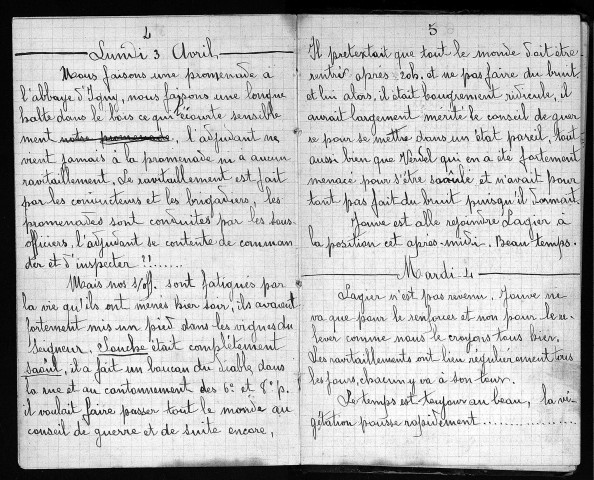 4
Lundi 3 Avril,
Nous faisons une promenade à
l'abbaye d'Igny, nous faisons une longue
halte dans le bois ce qui l'écourte sensible
ment notre promenade, l'adjudant ne
vient jamais à la promenade ni a aucun
ravitaillement, Le ravitaillement est fait
par les conducteurs et les brigadiers, les
promenades sont conduites par les sous-
officiers, l'adjudant se contente de comman
der et d'inspecter !!......
Mais nos s/off. sont fatigués par
la vie qu'ils ont menés hier soir, ils avaient
fortement mis un pied dans les vignes du
Seigneur, était complètement
saoûl, il a fait un boucan du diable dans
la rue et au cantonnement des 6e et 8e p.
il voulait faire passer tout le monde au
conseil de guerre et de suite encore,
5
Il pretextait que tout le monde doit être
rentré apres 20h, et ne pas faire du bruit
et lui alors, il était bougrement ridicule, il
aurait largement mérité le conseil de guer
re pour se mettre dans un état pareil, tout
aussi bien que qui en a été fortement
menacé pour s'être saoûlé et n'avait pour
tant pas fait du bruit puisqu'il dormait.
Jauve est allé rejoindre Lagier à
la position cet apres-midi. Beau temps.
Mardi 4
Lagier n'est pas revenu, Jauve ne
va que pour le renforcer et non pour le re
lever comme nous le croyons tous bien.
Les ravitaillements ont lieu regulierement tous
les jours, chacun y va à son tour.
Le temps est toujour au beau, la vé
gétation pousse rapidement..................